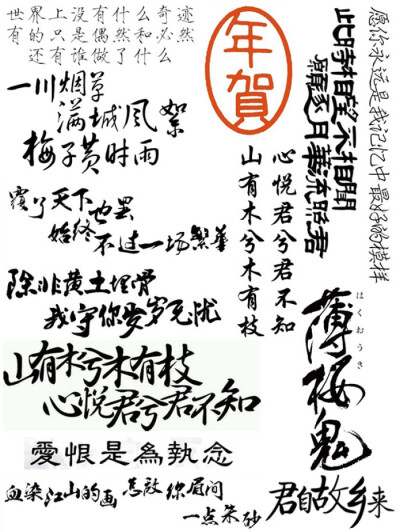 世界上没有什么奇迹
有的只是偶然和必然
还有谁做了什么
年賀
此時相望不相聞
願逐月華流照君
愿你永远是我记忆中最好的模样
一川烟草
满城风絮
梅子黄时雨
心悦君兮君不知
山有木兮木有枝
覆了天下也罢
始终
不过一场繁华
除非黄土埋骨
我守你百岁无忧
山有木兮木有枝
心悦君兮君不知
薄桜鬼
はくおうき
愛恨是為執念
血染江山的画
怎敌你眉间
一点朱砂
君自故乡来